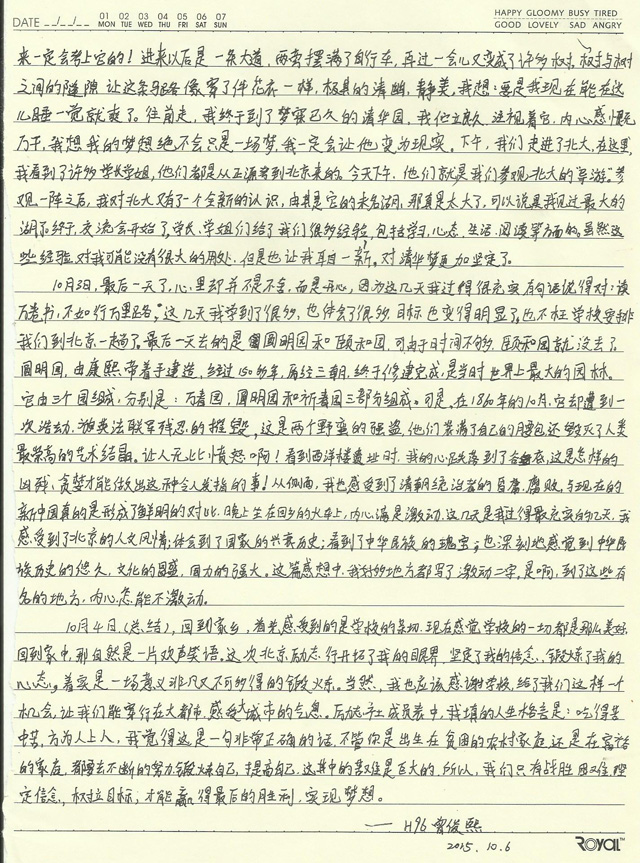 DATE __/__/__ 01 02 03 04 05 06 07 HAPPY GLOOMY BUSY TIRED
MON TUE WED THU FRI SAT SUN GOOD LOVELY SAD ANGRY
来一定会考上它的！进来以后是一条大道，两旁摆满了自行车，再过一会儿又变成了许多树，树与树
之间的隧隙让这条马路像穿了件花衣一样，极其的清幽，静美，我想：要是我现在能在这
儿睡一觉就爽了。往前走，我终于到了梦寐已久的清华园，我伫立良久，注视着它，内心感慨
万千，我想我的梦想绝不会只是一场梦，我一定会让他变为现实。下午，我们走进了北大，在这里，
我看到了许多学长学姐，他们都是从正源考到北京来的。今天下午，他们就是我们参观北大的"导游"。参
观一阵之后，我对北大又有了一个全新的认识，由其是它的未名湖，那真是太大了，可以说是我见过最大的
湖了。终于，交流会开始了，学长、学姐们给了我们很多经验，包括学习、心态、生活、阅读等方面的。虽然这
些经验，对我可能没有很大的用处，但是也让我耳目一新，对清华梦更加坚定了。
10月3日，最后一天了，心里却并不是不舍，而是开心，因为这几天我过得很充实，有句话说得对：读
万卷书，不如行万里路。这几天我学到了很多，也体会了很多，目标也变得明显了，也不枉学校安排
我们到北京一趟了。最后一天去的是圆明园和颐和园，可由于时间不够，颐和园就没去了。
圆明园，由康熙带着手建造，经过150多年，历经三朝，终于修建完成，是当时世界上最大的园林。
它由三个园组成，分别是：万春园，圆明园和祈春园三部分组成。可是，在1860年的10月，它却遭到一
次浩劫，被英法联军残忍的摧毁，这是两个野蛮的强盗，他们装满了自己的腰包还毁灭了人类
最崇高的艺术结晶。让人无比愤怒啊！看到西洋楼遗址时，我的心跌落到了谷底，这是怎样的
凶残、贪婪才能做出这种令人发指的事！从侧面，我也感受到了清朝统治者的昏庸、腐败，与现在的
新中国真的是形成了鲜明的对比。晚上坐在回乡的火车上，内心满是激动，这几天是我过得最充实的几天，我
感受到了北京的人文风情；体会到了国家的兴衰历史；看到了中华民族的瑰宝；也深刻地感觉到中华民
族历史的悠久，文化的昌盛，国力的强大。这篇感想中，我对好多地方都写了激动二字，是啊，到了这些有
名的地方，内心怎能不激动。
10月4日（总结），回到家乡，首先感受到的是学校的亲切，现在感觉学校的一切都是那么美好，
回到家中，那自然是一片欢声笑语。这次北京励志行开拓了我的眼界，坚定了我的信念，锻炼了我的
心态，着实是一场意义非凡又不可多得的锻炼。当然，我也应该感谢学校，给了我们这样一个
机会，让我们能穿行在大都市，感受大城市的气息。励志社成员表中，我填的人生格言是：吃得苦
中苦，方为人上人，我觉得这是一句非常正确的话，不管你是出生在贫困的农村家庭，还是在富裕
的家庭，都要去不断的努力，锻炼自己，提高自己，这其中的艰难是巨大的，所以，我们只有战胜困难，坚
定信念，树立目标，才能赢得最后的胜利，实现梦想。
——H96 曾俊熙
2015.10.6
ROYAL™